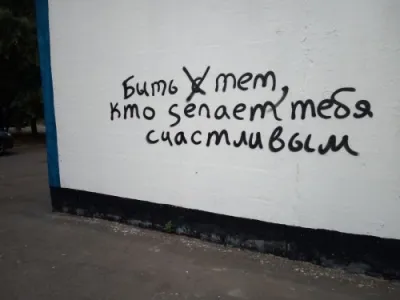 Быть с тем,
кто делает тебя
счастливым